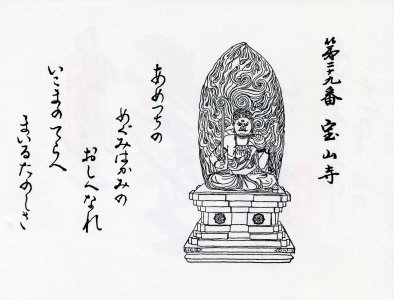 第二十九番 宝山寺
あめつちの
めぐみはかみの
おしへなれ
いこまのてらへ
まいるたのしさ